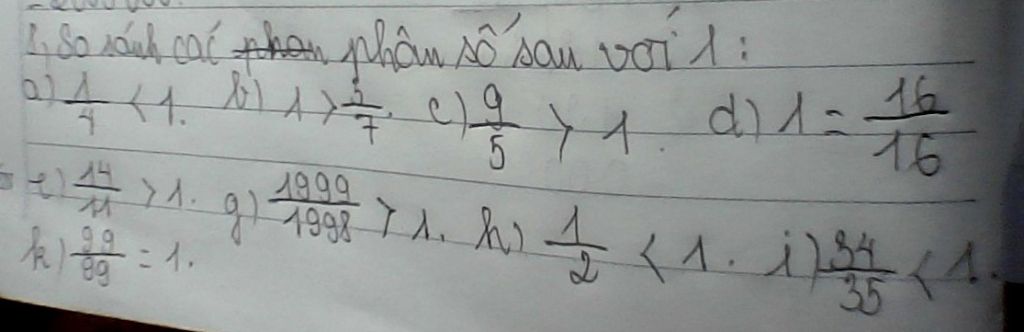 2, So sánh các phân số sau với 1:
a) 1/4 < 1. b) 1 > 3/7. c) 9/5 > 1. d) 1 = 16/16
e) 14/11 > 1. g) 1999/1998 > 1. h) 1/2 < 1. i) 34/35 < 1.
k) 99/99 = 1.